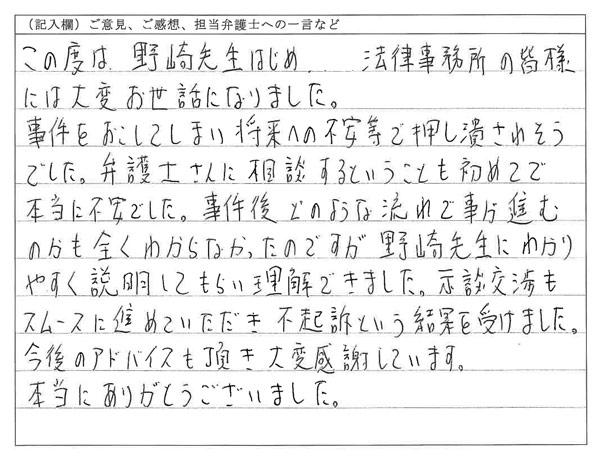 (記入欄)ご意見、ご感想、担当弁護士への一言など
この度は 野崎先生はじめ.... 法律事務所の皆様
には大変お世話になりました。
事件をおこしてしまい将来への不安等で押し潰されそう
でした。弁護士さんに相談するということも初めてで
本当に不安でした。事件後どのような流れで事が進む
のかも全くわからなかったのですが野崎先生にわかり
やすく説明してもらい理解できました。示談交渉も
スムースに進めていただき不起訴という結果を受けました。
今後のアドバイスも頂き大変感謝しています。
本当にありがとうございました。